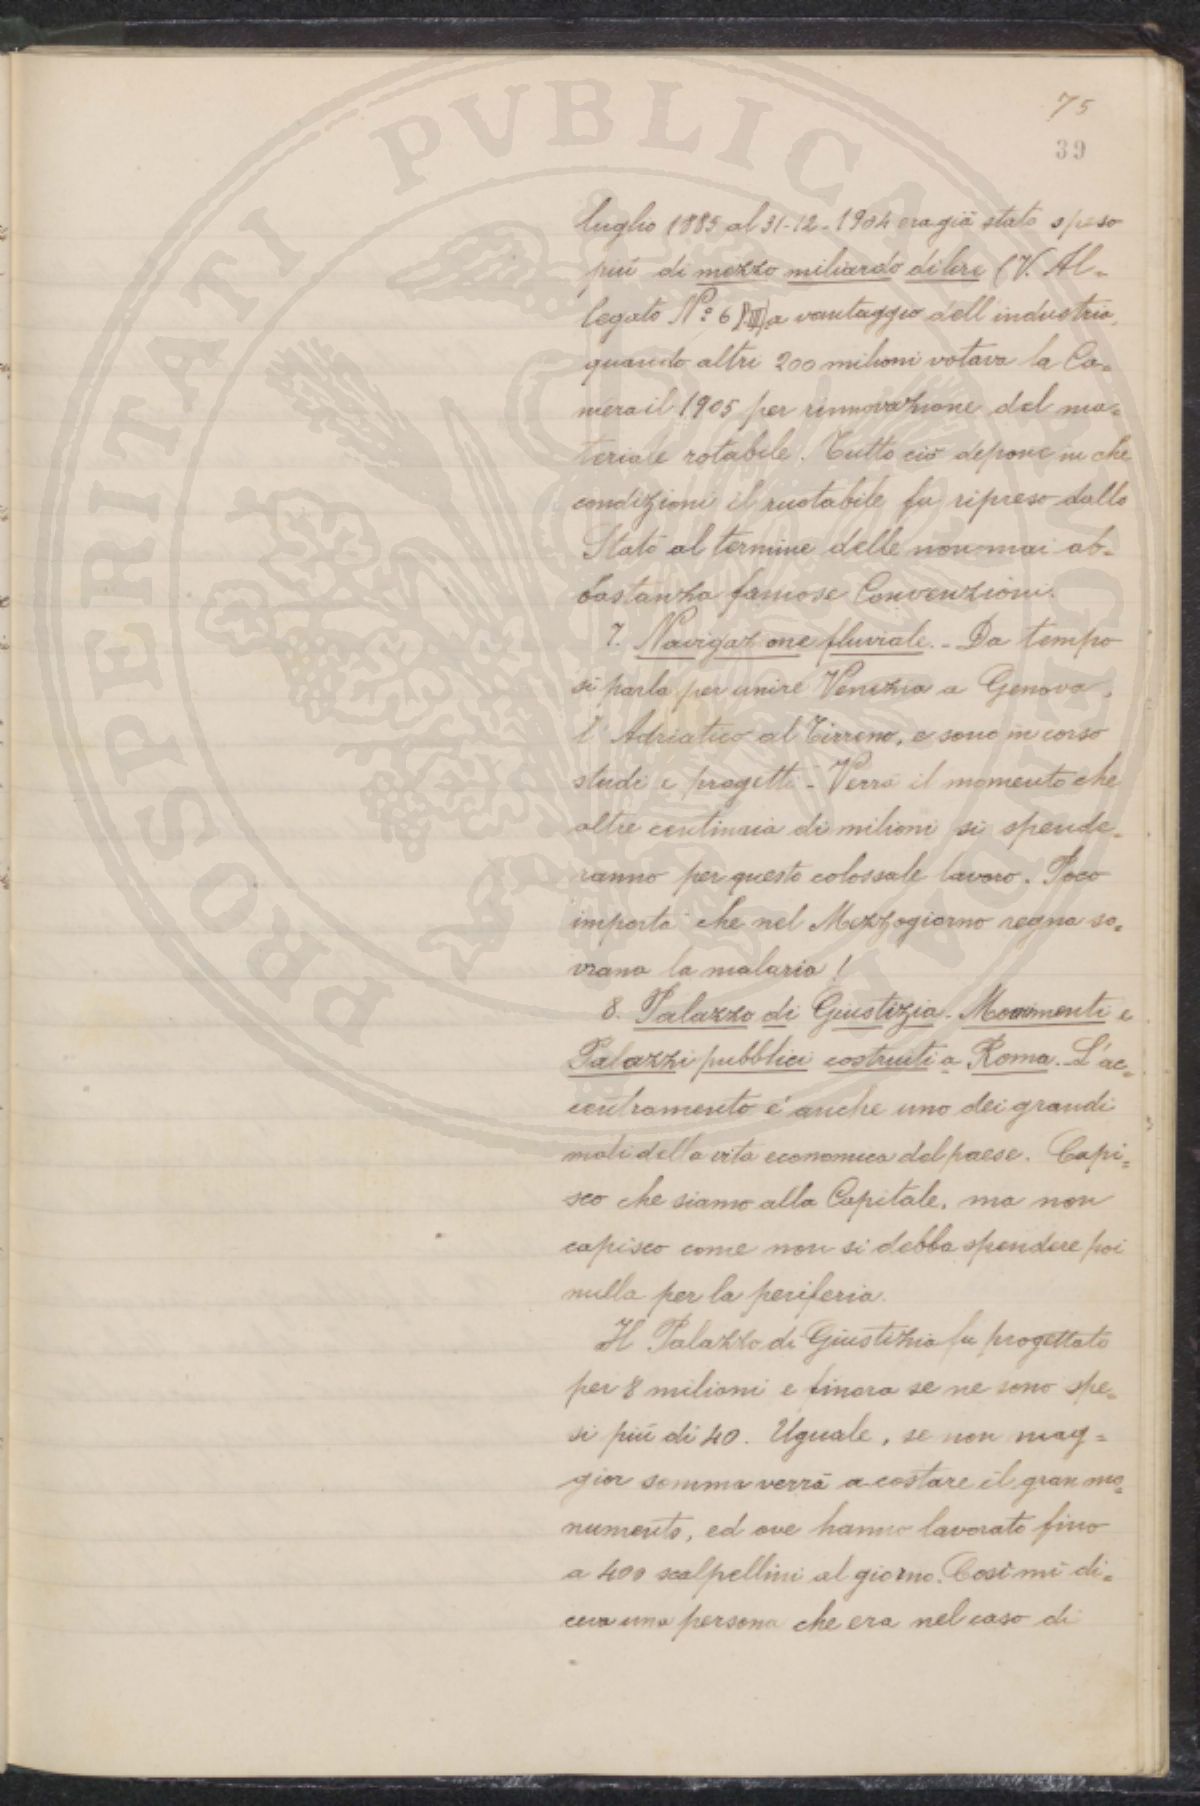 75
39
luglio 1885 al 31-12-1904 era già stato speso
più di mezzo miliardo di lire (V. Al=
legato N.º 6 VII) a vantaggio dell'industria,
quando altri 200 milioni votava la Ca=
mera il 1905 per rinnovazione del ma=
teriale rotabile. Tutto ciò depone in che
condizioni il ruotabile fu ripreso dallo
Stato al termine delle non mai ab=
bastanza famose Convenzioni.
7. Navigazione fluviale. - Da tempo
si parla per unire Venezia a Genova,
l'Adriatico al Tirreno, e sono in corso
studi e progetti - Verrà il momento che
altre centinaia di milioni si spende=
ranno per questo colossale lavoro. Poco
importa che nel Mezzogiorno regna so=
vrana la malaria!
8. Palazzo di Giustizia - Monumenti e
Palazzi pubblici costruiti a Roma. - L'ac=
centramento e' anche uno dei grandi
mali della vita economica del paese. Capi=
sco che siamo alla Capitale, ma non
capisco come non si debba spendere poi
nulla per la periferia.
Il Palazzo di Giustizia fu progettato
per 8 milioni e finora se ne sono spe=
si più di 40. Uguale, se non mag=
gior somma verrà a costare il gran mo=
numento, ed ove hanno lavorato fino
a 400 scalpellini al giorno. Così mi di=
ceva una persona che era nel caso di
PROSPERITATI PVBLICAE AVGENDAE